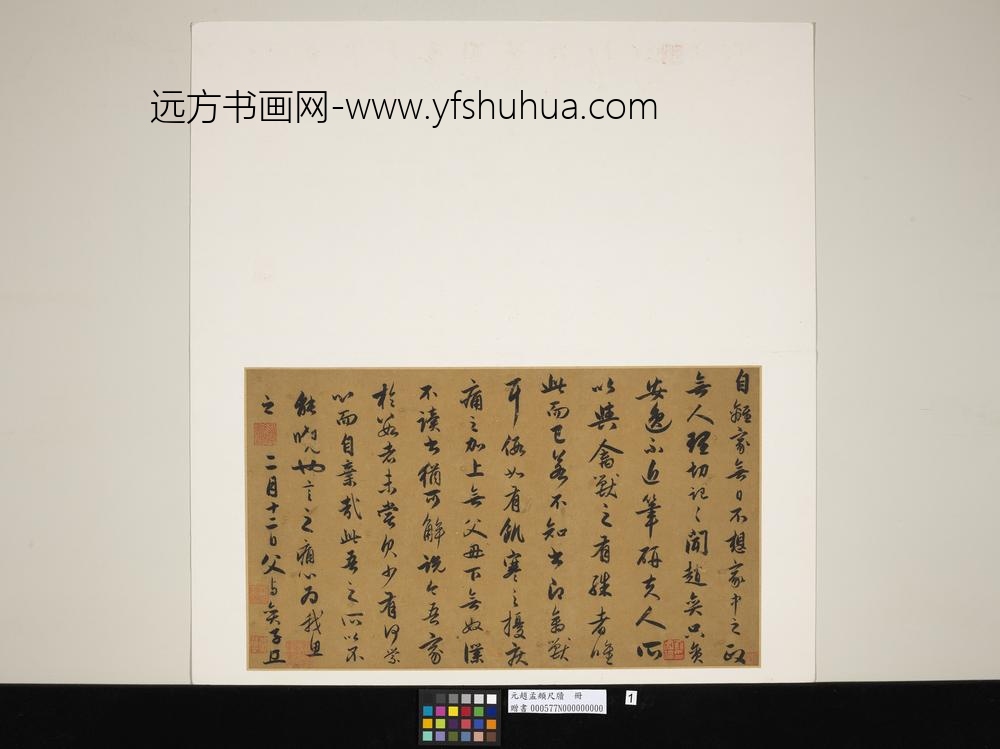 远方书画网-www.yfshuhua.com
自離家無日不想家中之政
無人理切記〻聞趙奕只貪
安逸不近筆硯夫人所
以與禽獸之有殊者唯
此而已若不知書即禽獸
耳假如有飢寒之擾疾
痛之加上無父母下無奴僕
不讀書猶可解說今吾家
於數者未嘗欠少有何縈
心而自棄哉此吾之所以不
能曉也言之痛心為我思
之
二月十二日父与奕子且
元趙孟頫尺牘 冊
贈書 000577N000000000
1